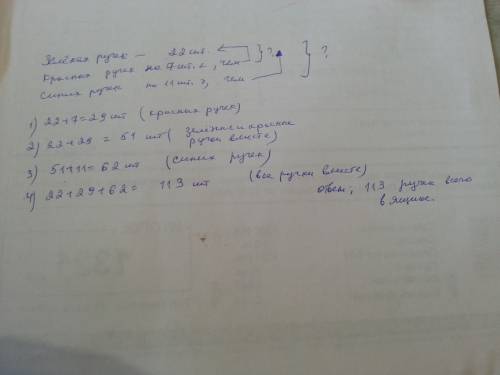 Зелёных ручек — 22 шт.
Красных ручек на 7 шт. <, чем } ?
Синих ручек на 11 шт. >, чем } ?
1) 22+7=29 шт (красных ручек)
2) 22+29 = 51 шт (зелёные и красные
ручки вместе)
3) 51+11=62 шт (синих ручек)
4) 22+29+62= 113 шт (все ручки вместе)
Ответ: 113 ручек всего
в ящике.